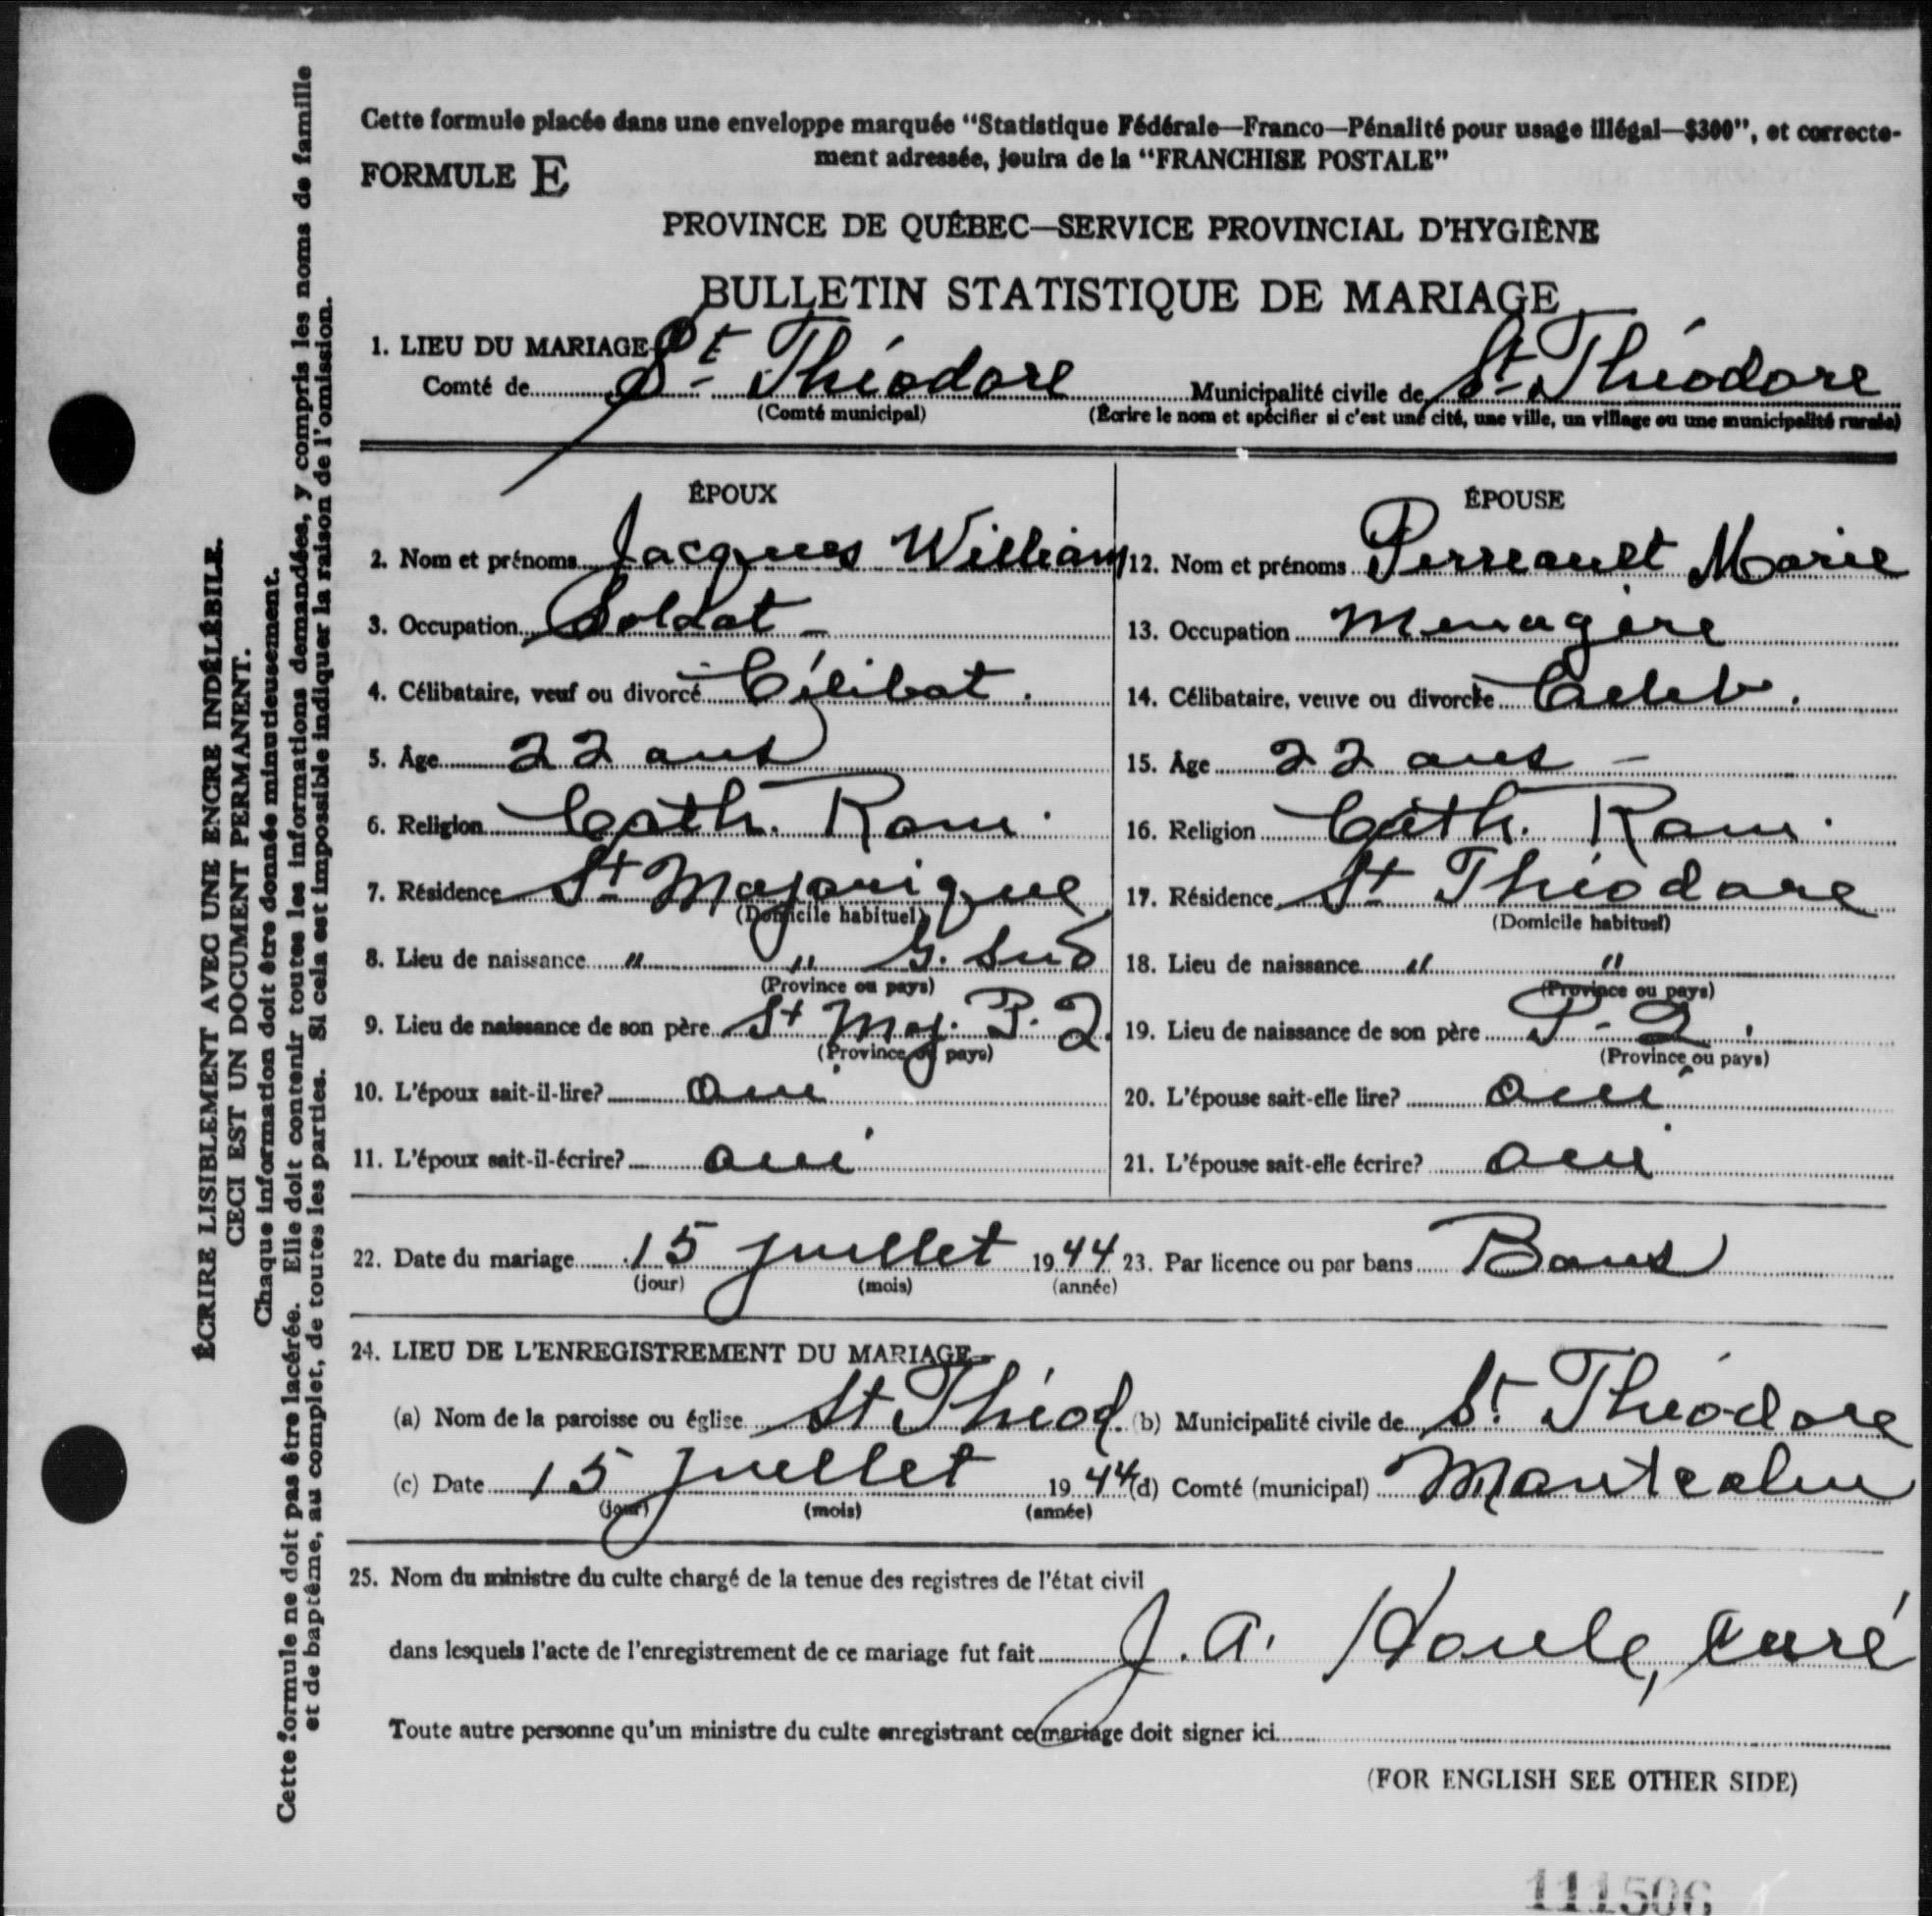 Cette formule placée dans une enveloppe marquée "Statistique Fédérale—Franco—Pénalité pour usage illégal—$300", et correcte-
ment adressée, jouira de la "FRANCHISE POSTALE"
FORMULE E
PROVINCE DE QUÉBEC—SERVICE PROVINCIAL D'HYGIÈNE
BULLETIN STATISTIQUE DE MARIAGE
1. LIEU DU MARIAGE
Comté de St Théodore Municipalité civile de St Théodore
(Comté municipal) (Écrire le nom et spécifier si c'est une cité, une ville, un village ou une municipalité rurale)
ÉPOUX
2. Nom et prénoms Jacques William
3. Occupation Soldat -
4. Célibataire, veuf ou divorcé Célibat.
5. Âge 22 ans
6. Religion Cath. Rom.
7. Résidence St Majorique
(Domicile habituel)
8. Lieu de naissance " " G. Sud
(Province ou pays)
9. Lieu de naissance de son père St Maj. P. Q.
(Province ou pays)
10. L'époux sait-il-lire? oui
11. L'époux sait-il-écrire? oui
ÉPOUSE
12. Nom et prénoms Perreault Marie
13. Occupation Menagère
14. Célibataire, veuve ou divorcée Celib.
15. Âge 22 ans -
16. Religion Cath. Rom.
17. Résidence St Théodore
(Domicile habituel)
18. Lieu de naissance " "
(Province ou pays)
19. Lieu de naissance de son père P-Q.
(Province ou pays)
20. L'épouse sait-elle lire? oui
21. L'épouse sait-elle écrire? oui
22. Date du mariage 15 juillet 1944 23. Par licence ou par bans Bans
(jour) (mois) (année)
24. LIEU DE L'ENREGISTREMENT DU MARIAGE—
(a) Nom de la paroisse ou église St Théod. (b) Municipalité civile de St Théodore
(c) Date 15 juillet 1944 (d) Comté (municipal) Montcalm
(jour) (mois) (année)
25. Nom du ministre du culte chargé de la tenue des registres de l'état civil
dans lesquels l'acte de l'enregistrement de ce mariage fut fait J. A. Houle, curé
Toute autre personne qu'un ministre du culte enregistrant ce mariage doit signer ici
(FOR ENGLISH SEE OTHER SIDE)
111506
ÉCRIRE LISIBLEMENT AVEC UNE ENCRE INDÉLÉBILE.
CECI EST UN DOCUMENT PERMANENT.
Chaque information doit être donnée minutieusement.
Cette formule ne doit pas être lacérée. Elle doit contenir toutes les informations demandées, y compris les noms de famille
et de baptême, au complet, de toutes les parties. Si cela est impossible indiquer la raison de l'omission.